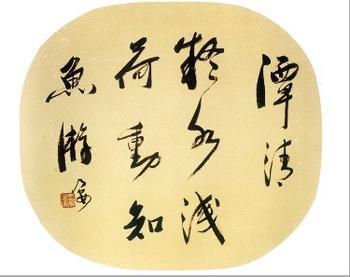 潭清
疑水浅
荷動知
魚游